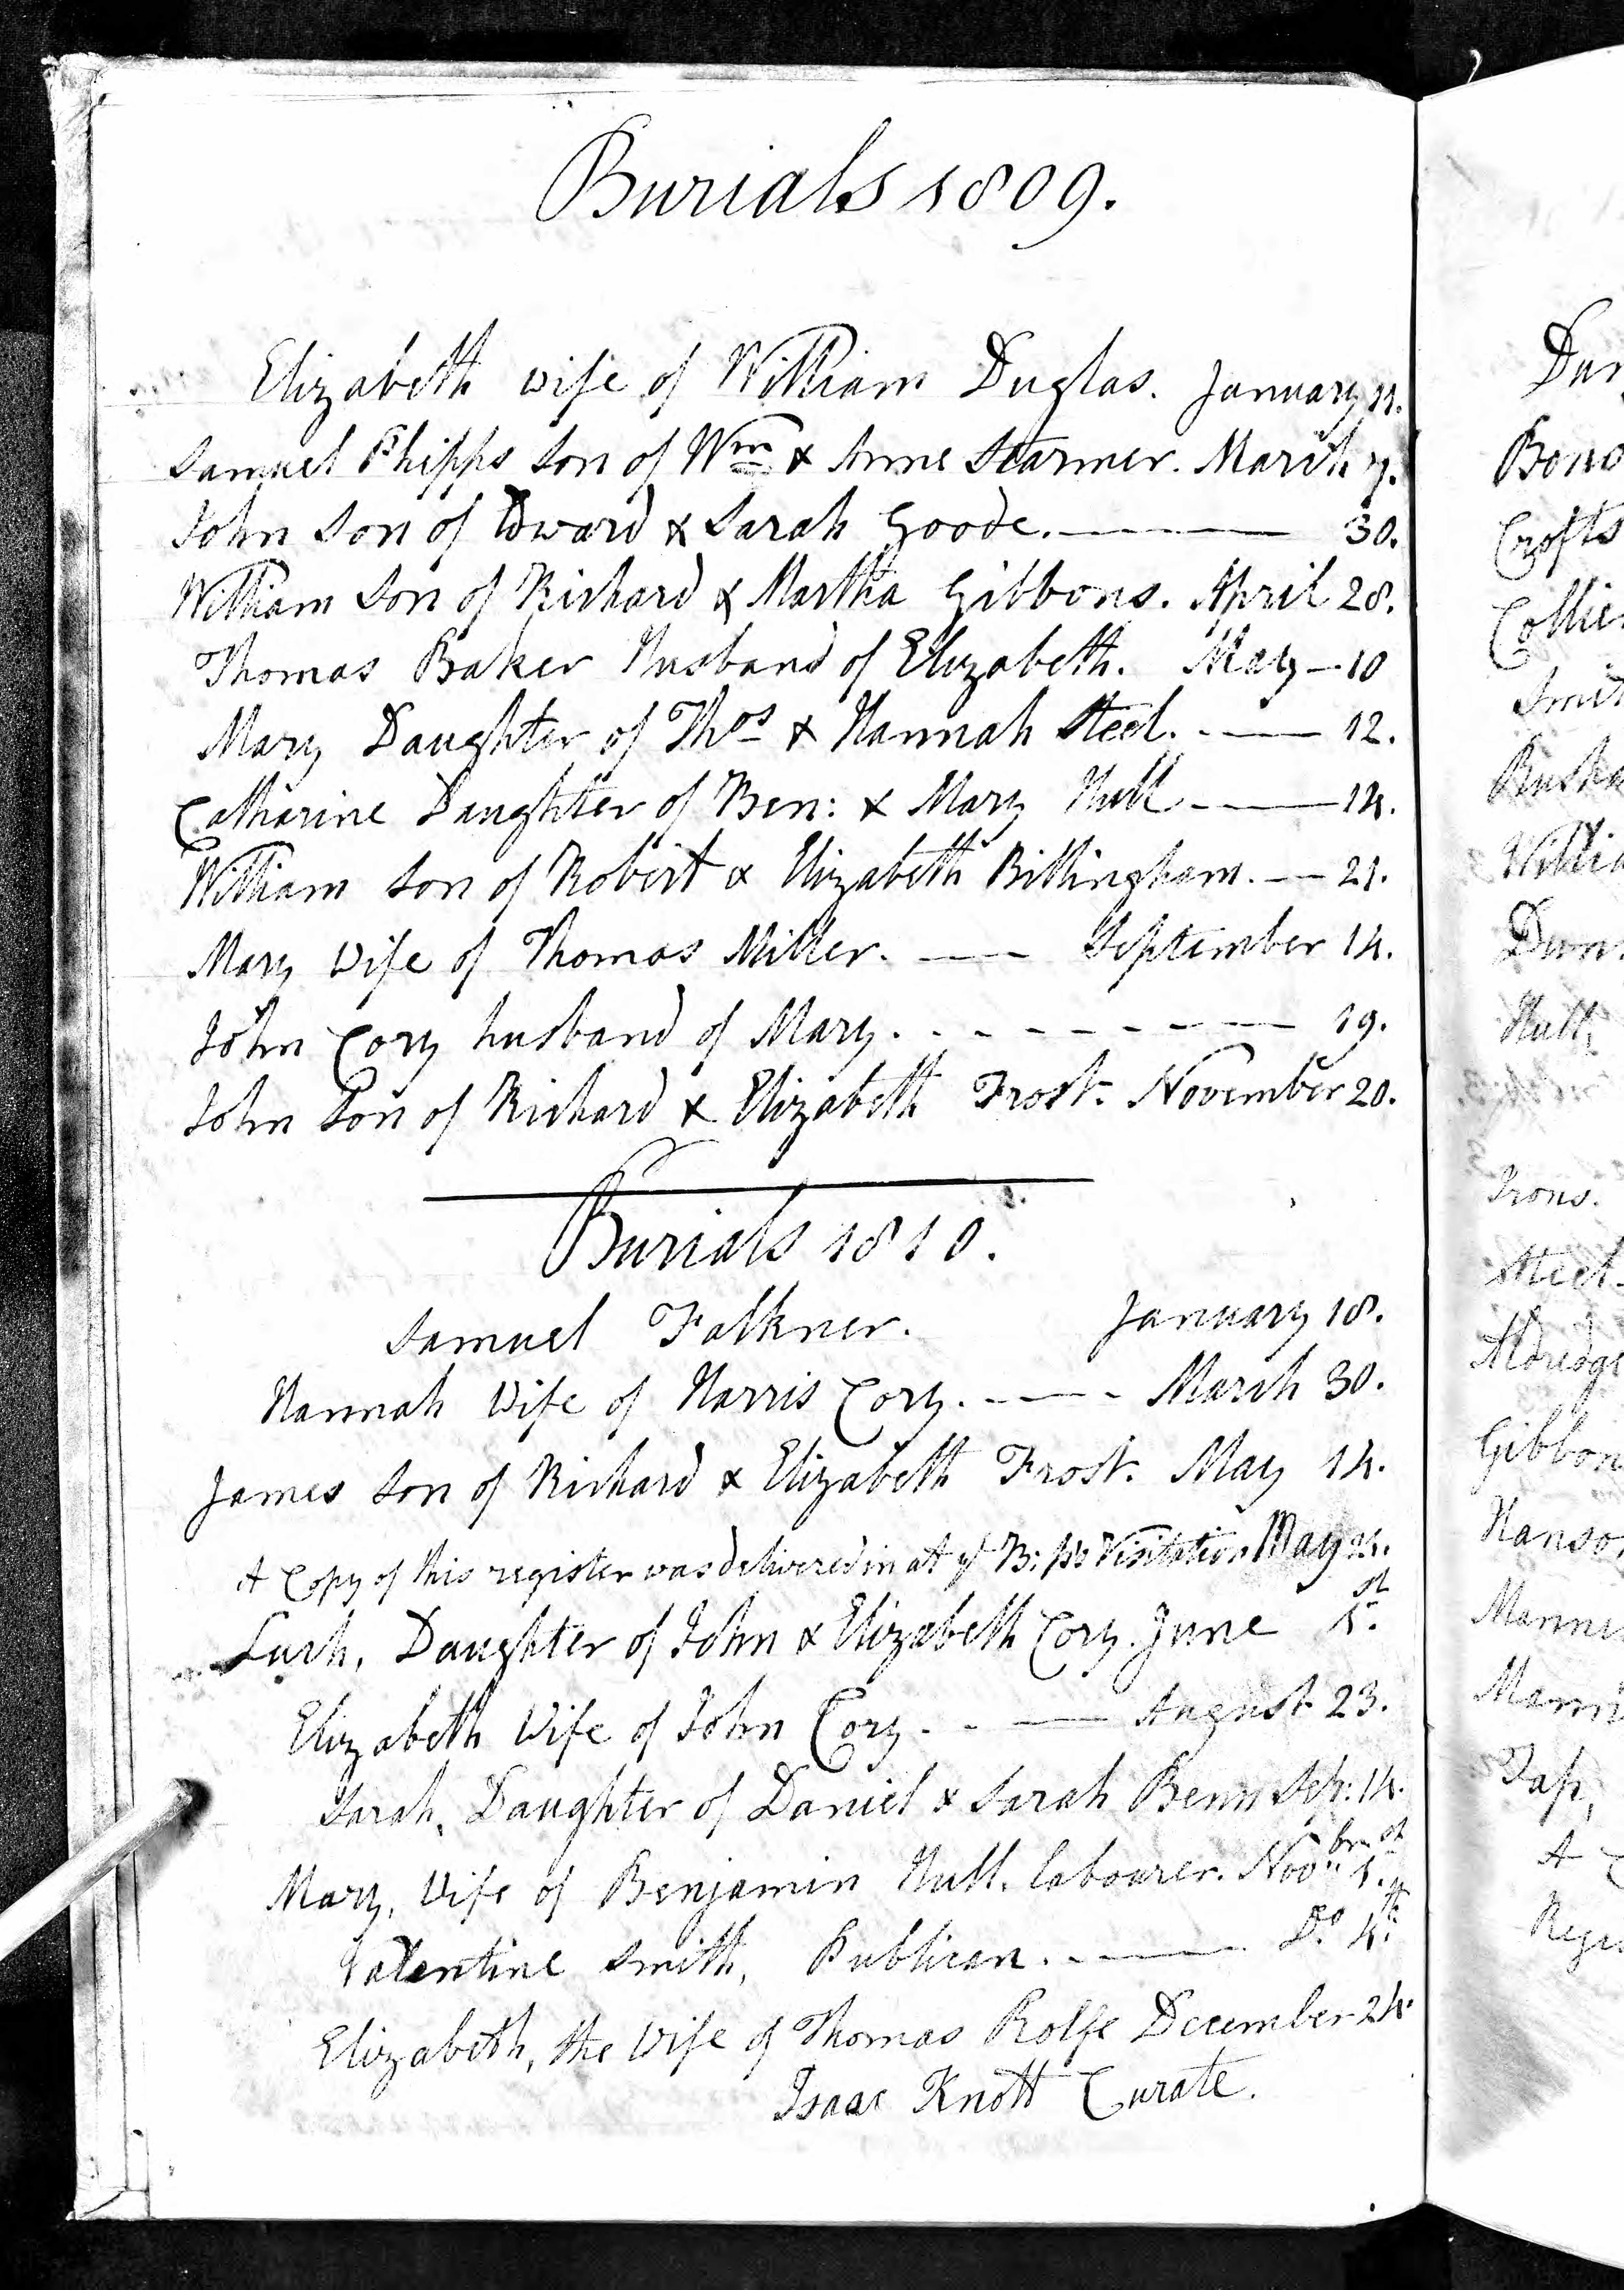 Burials 1809.
Elizabeth wife of William Duglas. January 11.
Samuel Phipps Son of Wm & Anne Starmer. March 7.
John Son of Edward & Sarah Goode. 30.
William Son of Richard & Martha Gibbons. April 28.
Thomas Baker Husband of Elizabeth. May 10
Mary Daughter of Thos & Hannah Steel. 12.
Catharine Daughter of Ben: & Mary Hull 14.
William Son of Robert & Elizabeth Billingham. 21.
Mary Wife of Thomas Miller. September 14.
John Cory husband of Mary. 19.
John Son of Richard & Elizabeth Frost. November 20.
Burials 1810.
Samuel Falkner. January 18.
Hannah Wife of Harris Cory. March 30.
James Son of Richard & Elizabeth Frost. May 14.
A Copy of this register was delivered in at ye Bi:ps Visitation May
Daughter of John & Elizabeth Cory. June 1st.
Elizabeth Wife of John Cory. August 23.
Sarah, Daughter of Daniel & Sarah Benn Sep: 14.
Mary, Wife of Benjamin Hull. labourer. Novbr 1st.
Valentine Smith, Publican. Do 4th.
Elizabeth, the Wife of Thomas Rolfe December 24.
Isaac Knott Curate.
Bono
Crofts
Collie
Smit
Willia
Hull
Irons.
Steel
Aldredge
Gibbon
Hanso
Manni
Tap,
A